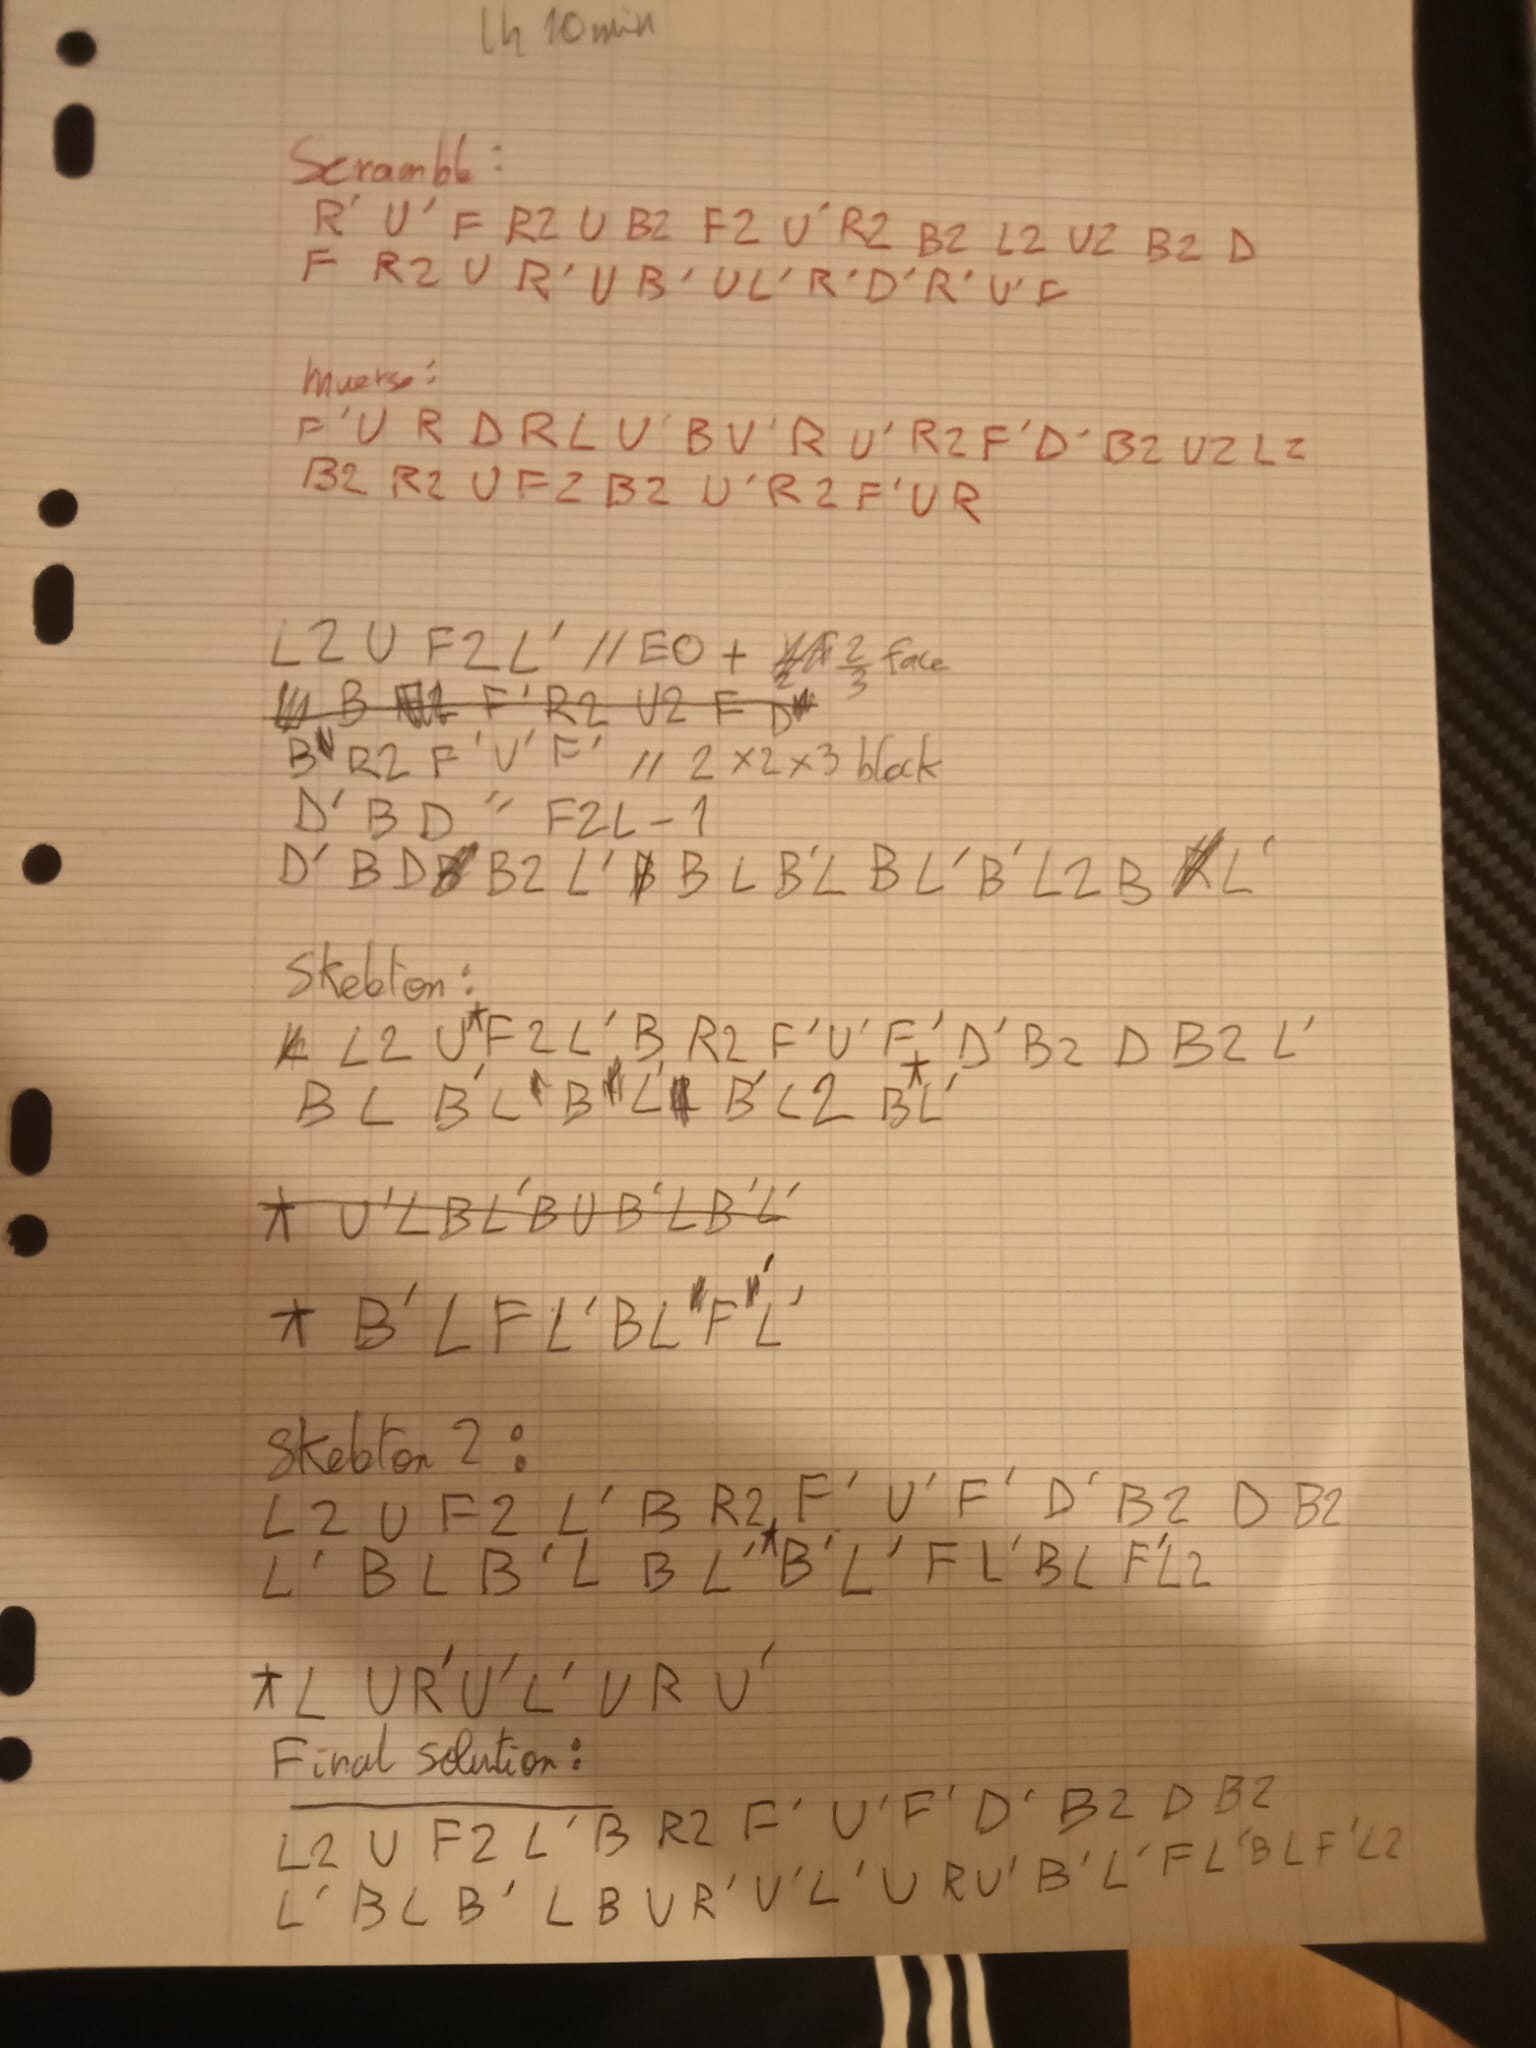 1h 10min
Scramble:
R' U' F R2 U B2 F2 U' R2 B2 L2 U2 B2 D
F R2 U R' U B' U L' R' D' R' U' F
Inverse:
F' U R D R L U' B U' R U' R2 F' D' B2 U2 L2
B2 R2 U F2 B2 U' R2 F' U R
L2 U F2 L' // EO + 2/3 face
B F' R2 U2 F D
B R2 F' U' F' // 2x2x3 block
D' B D " F2L-1
D' B D B2 L' B L B' L B L' B' L2 B L'
Skeleton:
L2 U * F2 L' B R2 F' U' F' D' B2 D B2 L'
B L B' L B L' B' L2 B * L'
* U' L B L' B U B' L B' L'
* B' L F L' B L F' L'
Skeleton 2:
L2 U F2 L' B R2 F' U' F' D' B2 D B2
L' B L B' L B L' * B' L' F L' B L F' L2
* L U R' U' L' U R U'
Final solution:
L2 U F2 L' B R2 F' U' F' D' B2 D B2
L' B L B' L B U R' U' L' U R U' B' L' F L' B L F' L2